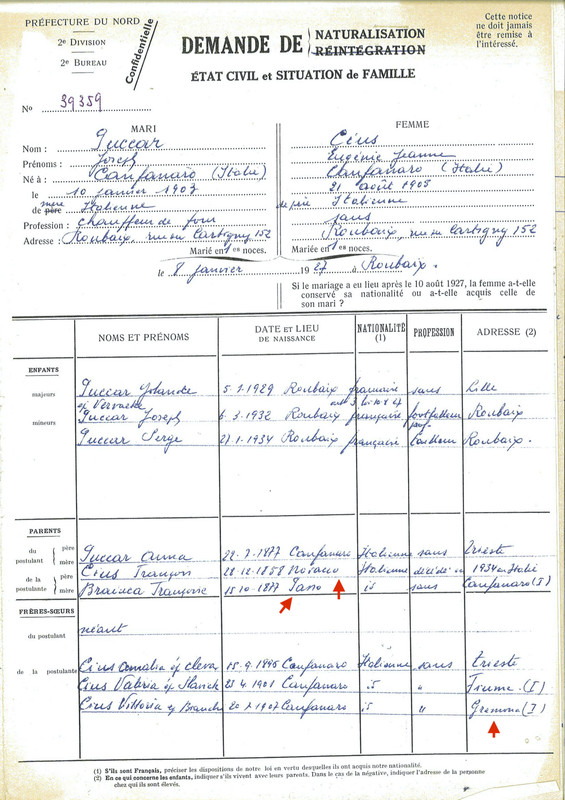 PRÉFECTURE DU NORD
2e DIVISION
2e BUREAU
Confidentielle
DEMANDE DE NATURALISATION
RÉINTÉGRATION
ÉTAT CIVIL et SITUATION de FAMILLE
Cette notice
ne doit jamais
être remise à
l'intéressé.
No 39359
MARI
Nom : Guccar
Prénoms : Joseph
Né à : Canfanaro (Italie)
le 10 janvier 1907
mère
de père Italienne
Profession : chauffeur de four
Adresse : Roubaix, rue Cartigny 152
Mariée en 1res noces.
FEMME
Céus
Eugénie Jeanne
Canfanaro (Italie)
21 août 1905
de père Italienne
sans
Roubaix, rue Cartigny 152
Mariée en 1res noces.
le 8 janvier 1927 à Roubaix.
Si le mariage a eu lieu après le 10 août 1927, la femme a-t-elle
conservé sa nationalité ou a-t-elle acquis celle de
son mari ?
NOMS ET PRÉNOMS DATE ET LIEU DE NAISSANCE NATIONALITÉ (1) PROFESSION ADRESSE (2)
ENFANTS
majeurs Guccar Yolande 5.1.1929 Roubaix française sans Lille
mineurs Guccar Joseph 6.3.1932 Roubaix française Roubaix
Guccar Serge 21.1.1934 Roubaix française Roubaix
PARENTS
du postulant père
mère Guccar Anna 22.7.1877 Canfanaro Italienne sans Trieste
de la postulante père Céus François 28.12.1858 Italienne décédé en 1934 en Italie
mère Françoise 15.10.1877 id sans Canfanaro (I)
FRÈRES-SŒURS
du postulant néant
de la postulante Céus Amalia ép 15.9.1895 Canfanaro Italienne sans Trieste
Céus Valéria ép 23.4.1901 Canfanaro id " Fiume (I)
Céus Vittoria ép 20.1.1907 Canfanaro id " Gremona (I)
(1) S'ils sont Français, préciser les dispositions de notre loi en vertu desquelles ils ont acquis notre nationalité.
(2) En ce qui concerne les enfants, indiquer s'ils vivent avec leurs parents. Dans le cas de la négative, indiquer l'adresse de la personne
chez qui ils sont élevés.